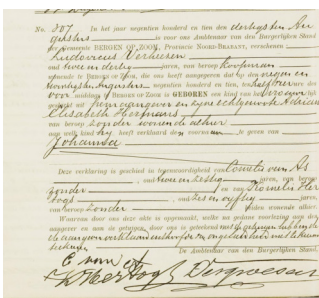 № 307 In het jaar negentien honderd en tien den dertigsten Au
gustus is voor ons Ambtenaar van den Burgerlijken Stand
der Gemeente BERGEN OP ZOOM, Provincie NOORD-BRABANT, verschenen:
Ludovicus
oud twee en dertig jaren, van beroep Koopman
wonende te BERGEN OP ZOOM, die ons heeft aangegeven dat den negen en
twintigsten Augustus negentien honderd en tien, ten half vier ure
des voor middags te BERGEN OP ZOOM is GEBOREN een kind van het vrouwelijk
geslacht uit hem aangever en zijne echtgenoote Adriana
Elisabeth Hermans
van beroep zonder wonende alhier
aan welk kind hij heeft verklaard den voornaam te geven van
Johanna
Deze verklaring is geschied in tegenwoordigheid van Cornelis van As
oud twee en zestig jaren, van beroep
zonder en van Cornelis Her
togs oud zes en vijftig jaren,
van beroep zonder beiden wonende alhier.
Waarvan door ons deze akte is opgemaakt, welke na gedane voorlezing aan den
aangever en aan de getuigen, door ons is geteekend met de getuigen hebbende
de aangever verklaard
De Ambtenaar van den Burgerlijken Stand,
C van As
C Hertogs